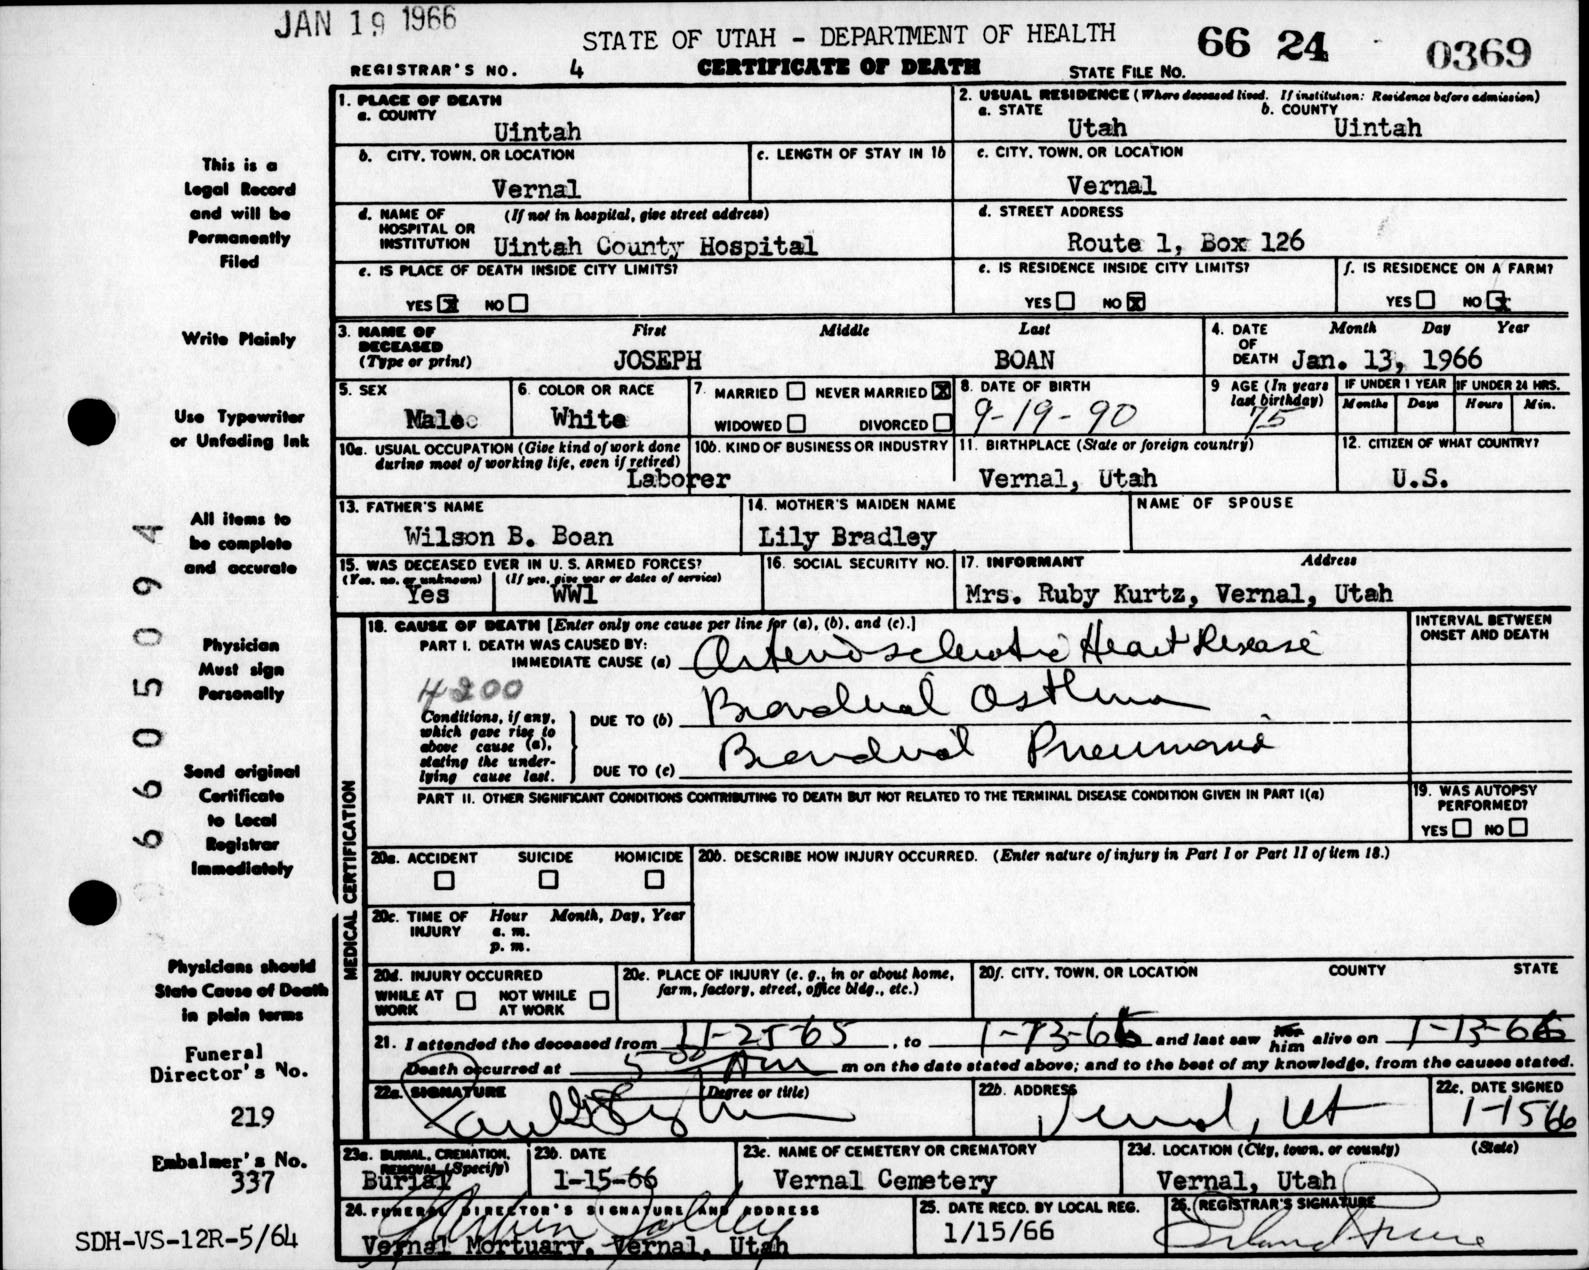 JAN 19 1966
STATE OF UTAH - DEPARTMENT OF HEALTH
66 24 0369
REGISTRAR'S NO. 4
CERTIFICATE OF DEATH
STATE FILE NO.
This is a
Legal Record
and will be
Permanently
Filed
Write Plainly
Use Typewriter
or Unfading Ink
All items to
be complete
and accurate
Physician
Must sign
Personally
Send original
Certificate
to Local
Registrar
Immediately
Physicians should
State Cause of Death
in plain terms
Funeral
Director's No.
219
Embalmer's No.
337
SDH-VS-12R-5/64
6605094
1. PLACE OF DEATH
a. COUNTY
Uintah
2. USUAL RESIDENCE (Where deceased lived. If institution: Residence before admission)
a. STATE b. COUNTY
Utah Uintah
b. CITY, TOWN, OR LOCATION
Vernal
c. LENGTH OF STAY IN 1b
c. CITY, TOWN, OR LOCATION
Vernal
d. NAME OF (If not in hospital, give street address)
HOSPITAL OR
INSTITUTION Uintah County Hospital
d. STREET ADDRESS
Route 1, Box 126
e. IS PLACE OF DEATH INSIDE CITY LIMITS?
YES X NO
e. IS RESIDENCE INSIDE CITY LIMITS?
YES NO X
f. IS RESIDENCE ON A FARM?
YES NO X
3. NAME OF First Middle Last
DECEASED
(Type or print) JOSEPH BOAN
4. DATE Month Day Year
OF
DEATH Jan. 13, 1966
5. SEX
Male
6. COLOR OR RACE
White
7. MARRIED NEVER MARRIED X
WIDOWED DIVORCED
8. DATE OF BIRTH
9-19-90
9 AGE (In years
last birthday)
75
IF UNDER 1 YEAR IF UNDER 24 HRS.
Months Days Hours Min.
10a. USUAL OCCUPATION (Give kind of work done
during most of working life, even if retired)
Laborer
10b. KIND OF BUSINESS OR INDUSTRY
11. BIRTHPLACE (State or foreign country)
Vernal, Utah
12. CITIZEN OF WHAT COUNTRY?
U.S.
13. FATHER'S NAME
Wilson B. Boan
14. MOTHER'S MAIDEN NAME
Lily Bradley
NAME OF SPOUSE
15. WAS DECEASED EVER IN U. S. ARMED FORCES?
(Yes, no, or unknown) (If yes, give war or dates of service)
Yes WW1
16. SOCIAL SECURITY NO.
17. INFORMANT Address
Mrs. Ruby Kurtz, Vernal, Utah
MEDICAL CERTIFICATION
18. CAUSE OF DEATH [Enter only one cause per line for (a), (b), and (c).]
PART I. DEATH WAS CAUSED BY:
IMMEDIATE CAUSE (a) Arteriosclerotic Heart Disease
INTERVAL BETWEEN
ONSET AND DEATH
4200
Conditions, if any,
which gave rise to
above cause (a),
stating the under-
lying cause last.
DUE TO (b) Bronchial Asthma
DUE TO (c) Bronchial Pneumonia
PART II. OTHER SIGNIFICANT CONDITIONS CONTRIBUTING TO DEATH BUT NOT RELATED TO THE TERMINAL DISEASE CONDITION GIVEN IN PART I(a)
19. WAS AUTOPSY
PERFORMED?
YES NO
20a. ACCIDENT SUICIDE HOMICIDE
20b. DESCRIBE HOW INJURY OCCURRED. (Enter nature of injury in Part I or Part II of item 18.)
20c. TIME OF Hour Month, Day, Year
INJURY a. m.
p. m.
20d. INJURY OCCURRED
WHILE AT NOT WHILE
WORK AT WORK
20e. PLACE OF INJURY (e. g., in or about home,
farm, factory, street, office bldg., etc.)
20f. CITY, TOWN, OR LOCATION COUNTY STATE
21. I attended the deceased from 11-25-65, to 1-13-66 and last saw him alive on 1-13-66
Death occurred at 5 AM m on the date stated above; and to the best of my knowledge, from the causes stated.
22a. SIGNATURE (Degree or title)
22b. ADDRESS
Vernal, Ut
22c. DATE SIGNED
1-15 66
23a. BURIAL, CREMATION,
REMOVAL (Specify)
Burial
23b. DATE
1-15-66
23c. NAME OF CEMETERY OR CREMATORY
Vernal Cemetery
23d. LOCATION (City, town, or county) (State)
Vernal, Utah
24. FUNERAL DIRECTOR'S SIGNATURE AND ADDRESS
Vernal Mortuary, Vernal, Utah
25. DATE RECD. BY LOCAL REG.
1/15/66
26. REGISTRAR'S SIGNATURE